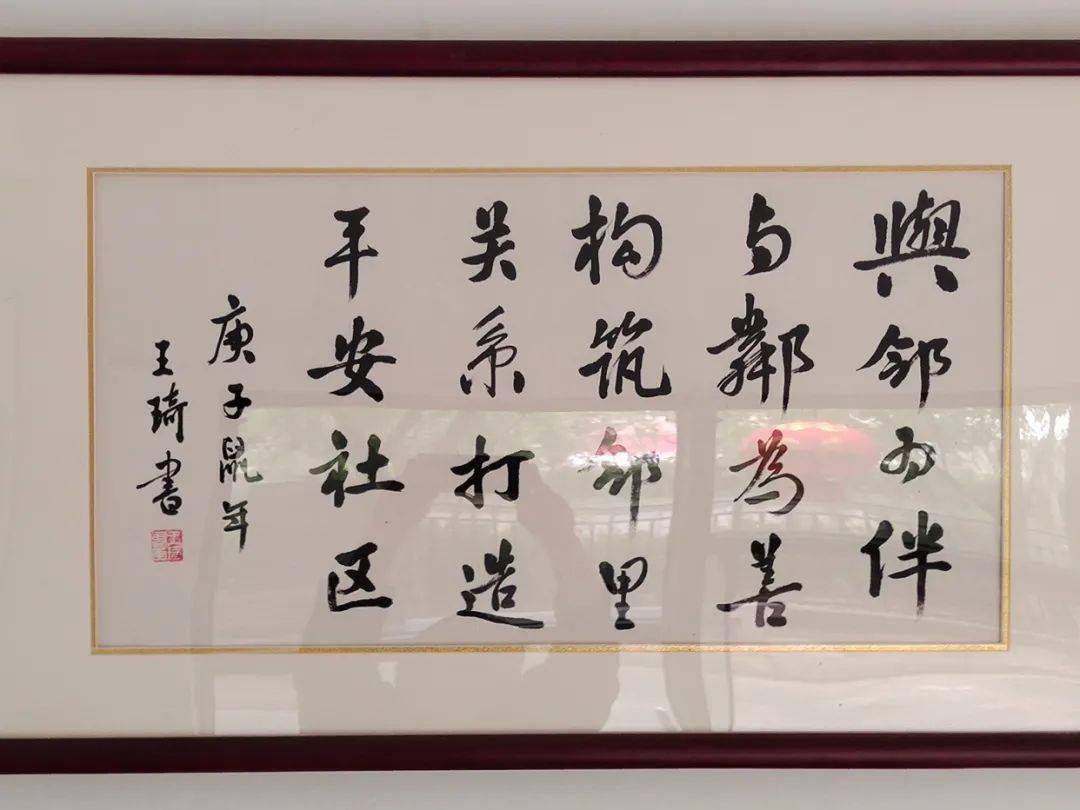 與邻为伴
与鄰為善
构筑邻里
关系打造
平安社区
庚子鼠年
王琦書